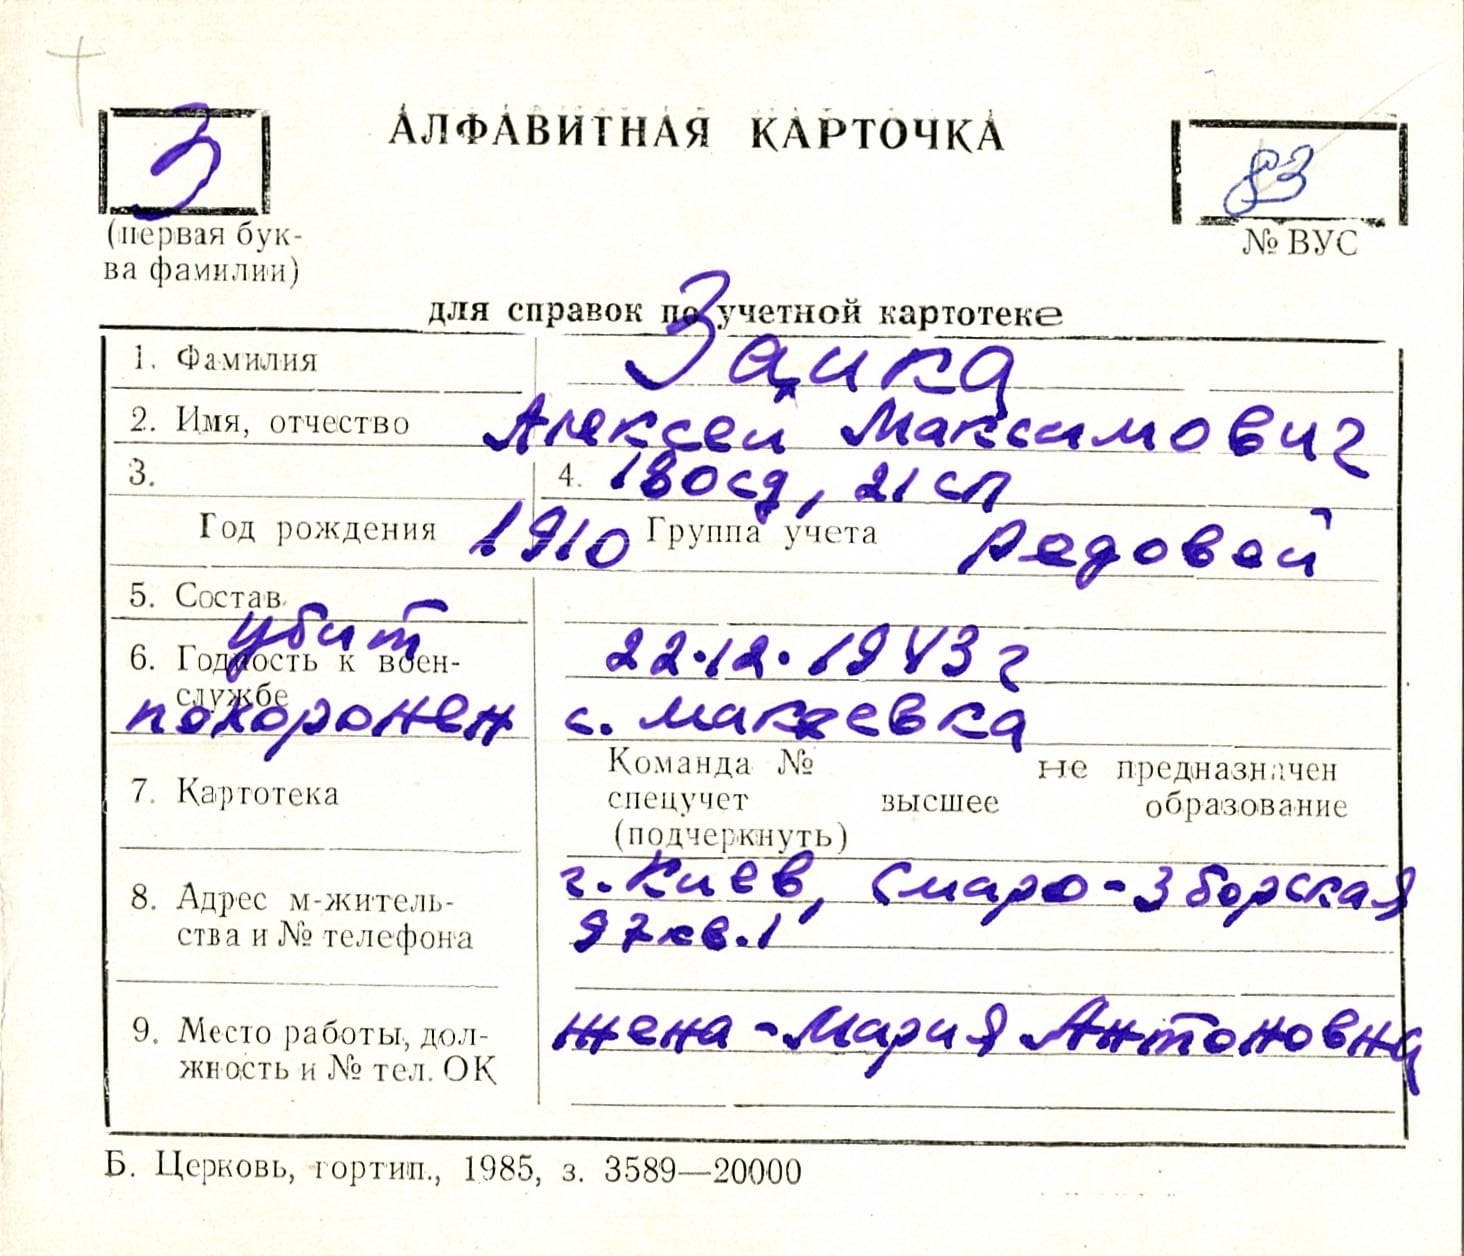 З
АЛФАВИТНАЯ КАРТОЧКА
83
(первая бук-
ва фамилии)
№ ВУС
для справок по учетной картотеке
1. Фамилия Заика
2. Имя, отчество Алексей Максимович
3. 4. 180сд, 21 сп
Год рождения 1910 Группа учета рядовой
5. Состав
убит 22.12.1943 г
6. Годность к воен-
службе
похоронен с. Макеевка
7. Картотека
Команда № не предназначен
спецучет высшее образование
(подчеркнуть)
8. Адрес м-житель-
ства и № телефона
г. Киев, Старо-Зборская
97 кв. 1
9. Место работы, дол-
жность и № тел. ОК
жена - Мария Антоновна
Б. Церковь, гортип., 1985, з. 3589—20000